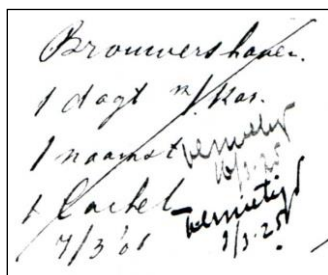 Brouwershaven.
1 dagt n/ Kas.
1 naamst vernietigd
16/3.25
1 Cachet vernietigd
7/3 '01 1/3.25